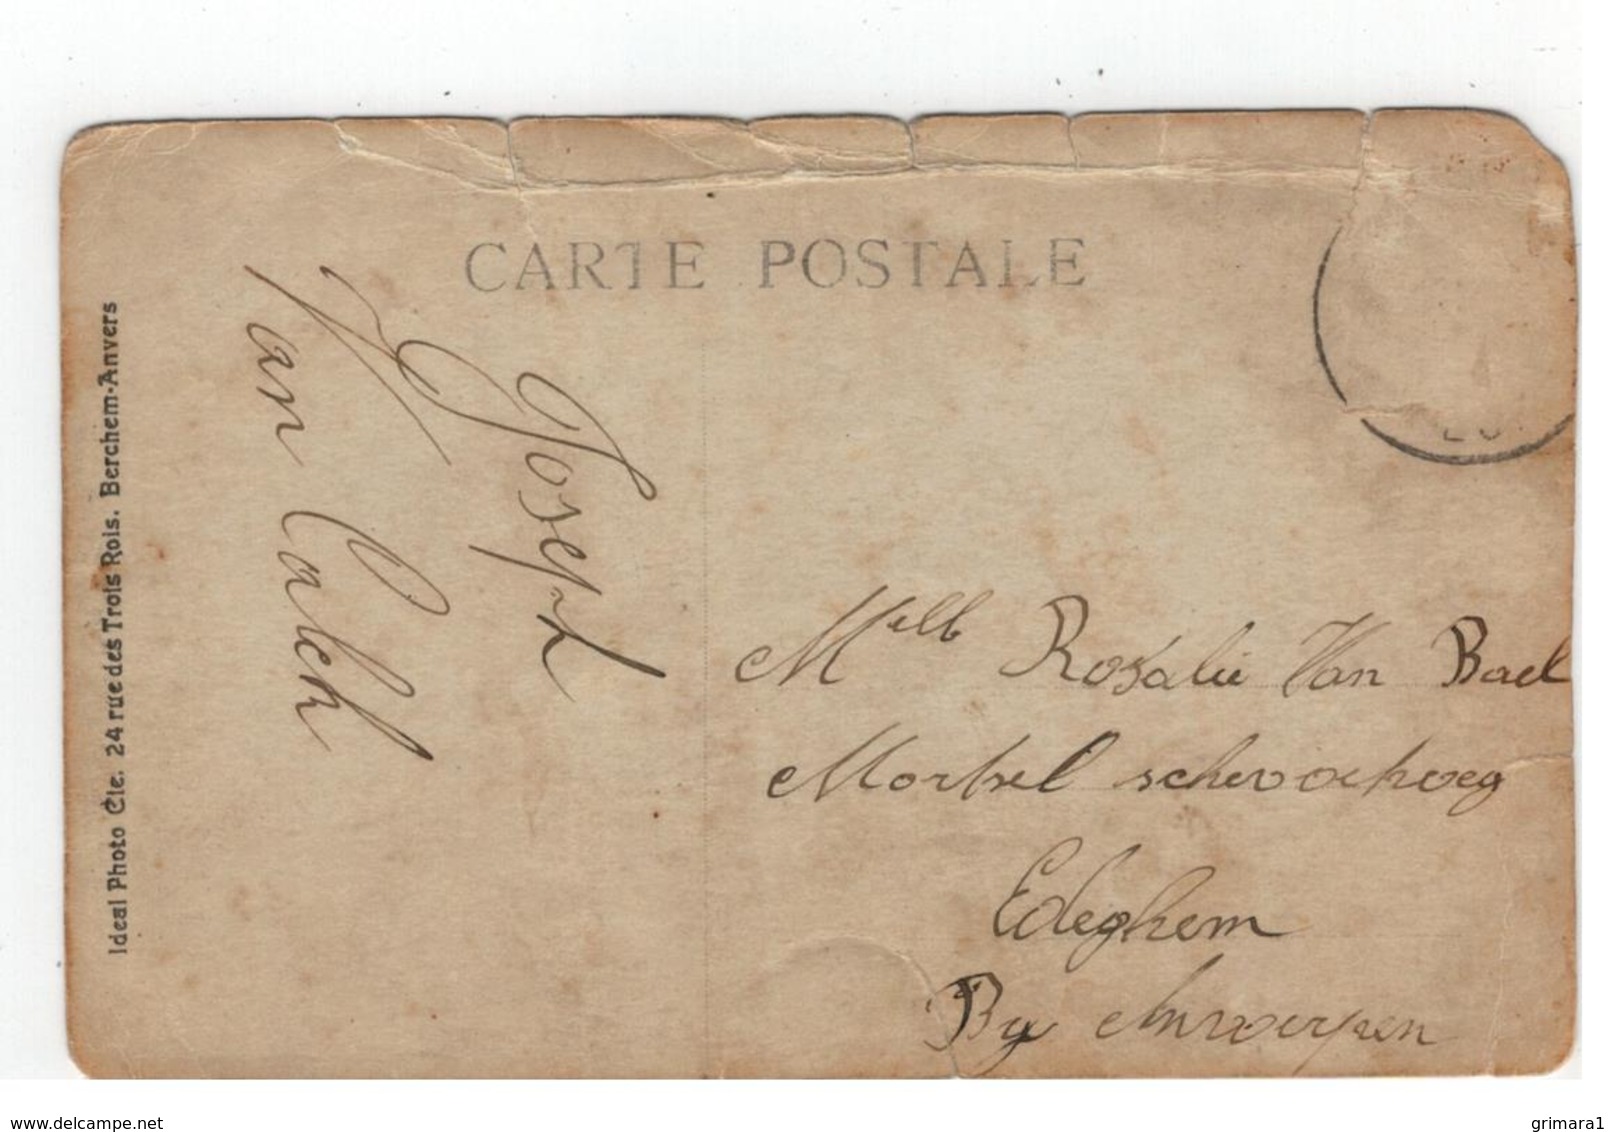 CARTE POSTALE
Ideal Photo Cie. 24 rue des Trois Rois. Berchem-Anvers
Joseph
Van Calck
Melle Rosalie Van Bael
Mortsel
Edeghem
By Antwerpen
www.delcampe.net
grimara1